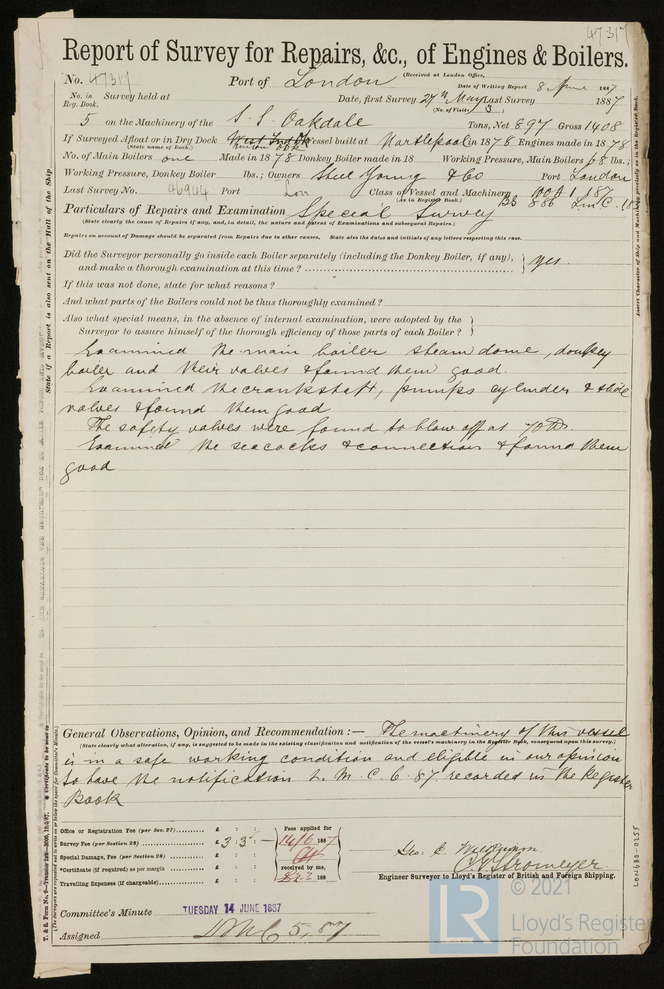 47317
Report of Survey for Repairs, &c., of Engines & Boilers.
(Received at London Office,
No. 47317 Port of London
Date of Writing Report 8 June 1887
No. in Reg. Book. Survey held at Date, first Survey 27th May Last Survey 1887
(No. of Visits) 3
5 on the Machinery of the S.S. Oakdale Tons, Net 897 Gross 1408
If Surveyed Afloat or in Dry Dock West Ind Dk Vessel built at Hartlepool in 1878 Engines made in 1878
(State name of Dock.)
No. of Main Boilers one Made in 1878 Donkey Boiler made in 18 Working Pressure, Main Boilers 68 lbs.;
Working Pressure, Donkey Boiler lbs.; Owners Steel Young & Co Port London
Last Survey No. 46944 Port Lon Class of Vessel and Machinery 100A1 1.87
(As in Register Book.) BS 886 LMC
Particulars of Repairs and Examination Special Survey
(State clearly the cause of Repairs if any, and, in detail, the nature and extent of Examinations and subsequent Repairs.)
Repairs on account of Damage should be separated from Repairs due to other causes, State also the dates and initials of any letters respecting this case.
Did the Surveyor personally go inside each Boiler separately (including the Donkey Boiler, if any), and make a thorough examination at this time ? } yes.
If this was not done, state for what reasons ?
And what parts of the Boilers could not be thus thoroughly examined ?
Also what special means, in the absence of internal examination, were adopted by the Surveyor to assure himself of the thorough efficiency of those parts of each Boiler ? }
Examined the main boiler steam dome, donkey
boiler and their valves & found them good.
Examined the crankshaft, pumps cylinder & slide
valves & found them good
The safety valves were found to blow off at 70 lbs
Examined the seacocks & connections & found them
good
General Observations, Opinion, and Recommendation :— The machinery of this vessel
(State clearly what alteration, if any, is suggested to be made in the existing classification and notification of the vessel's machinery in the Register Book, consequent upon this survey.)
is in a safe working condition and eligible in our opinion
to have the notification L. M. C. 6.87 recorded in the Register
Book
Office or Registration Fee (per Sec. 27) £ : :
Survey Fee (per Section 28) £ 3 : 3 : —
Special Damage, Fee (per Section 28) £ : :
*Certificate (if required) as per margin £ : :
Travelling Expenses (if chargeable) £ : :
Fees applied for
14/6 1887
received by me,
188
Geo. C.
C. E. Stromeyer.
Engineer Surveyor to Lloyd's Register of British and Foreign Shipping.
Committee's Minute TUESDAY 14 JUNE 1887
Assigned LMC 5,87
State if a Report is also sent on the Hull of the Ship
Insert Character of Ship and Machinery precisely as in the Register Book.
LON680-0255
LR
© 2021
Lloyd's Register
Foundation